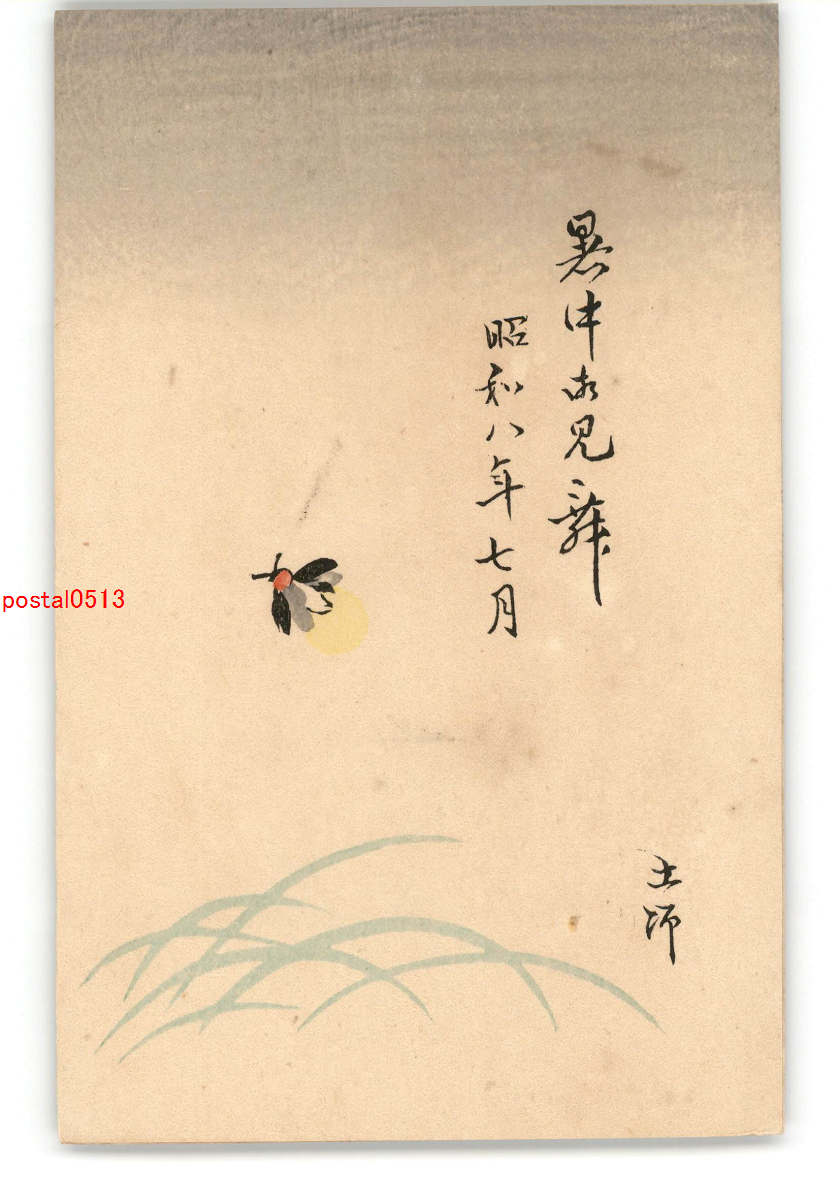 暑中御見舞
昭和八年七月
土師
postal0513